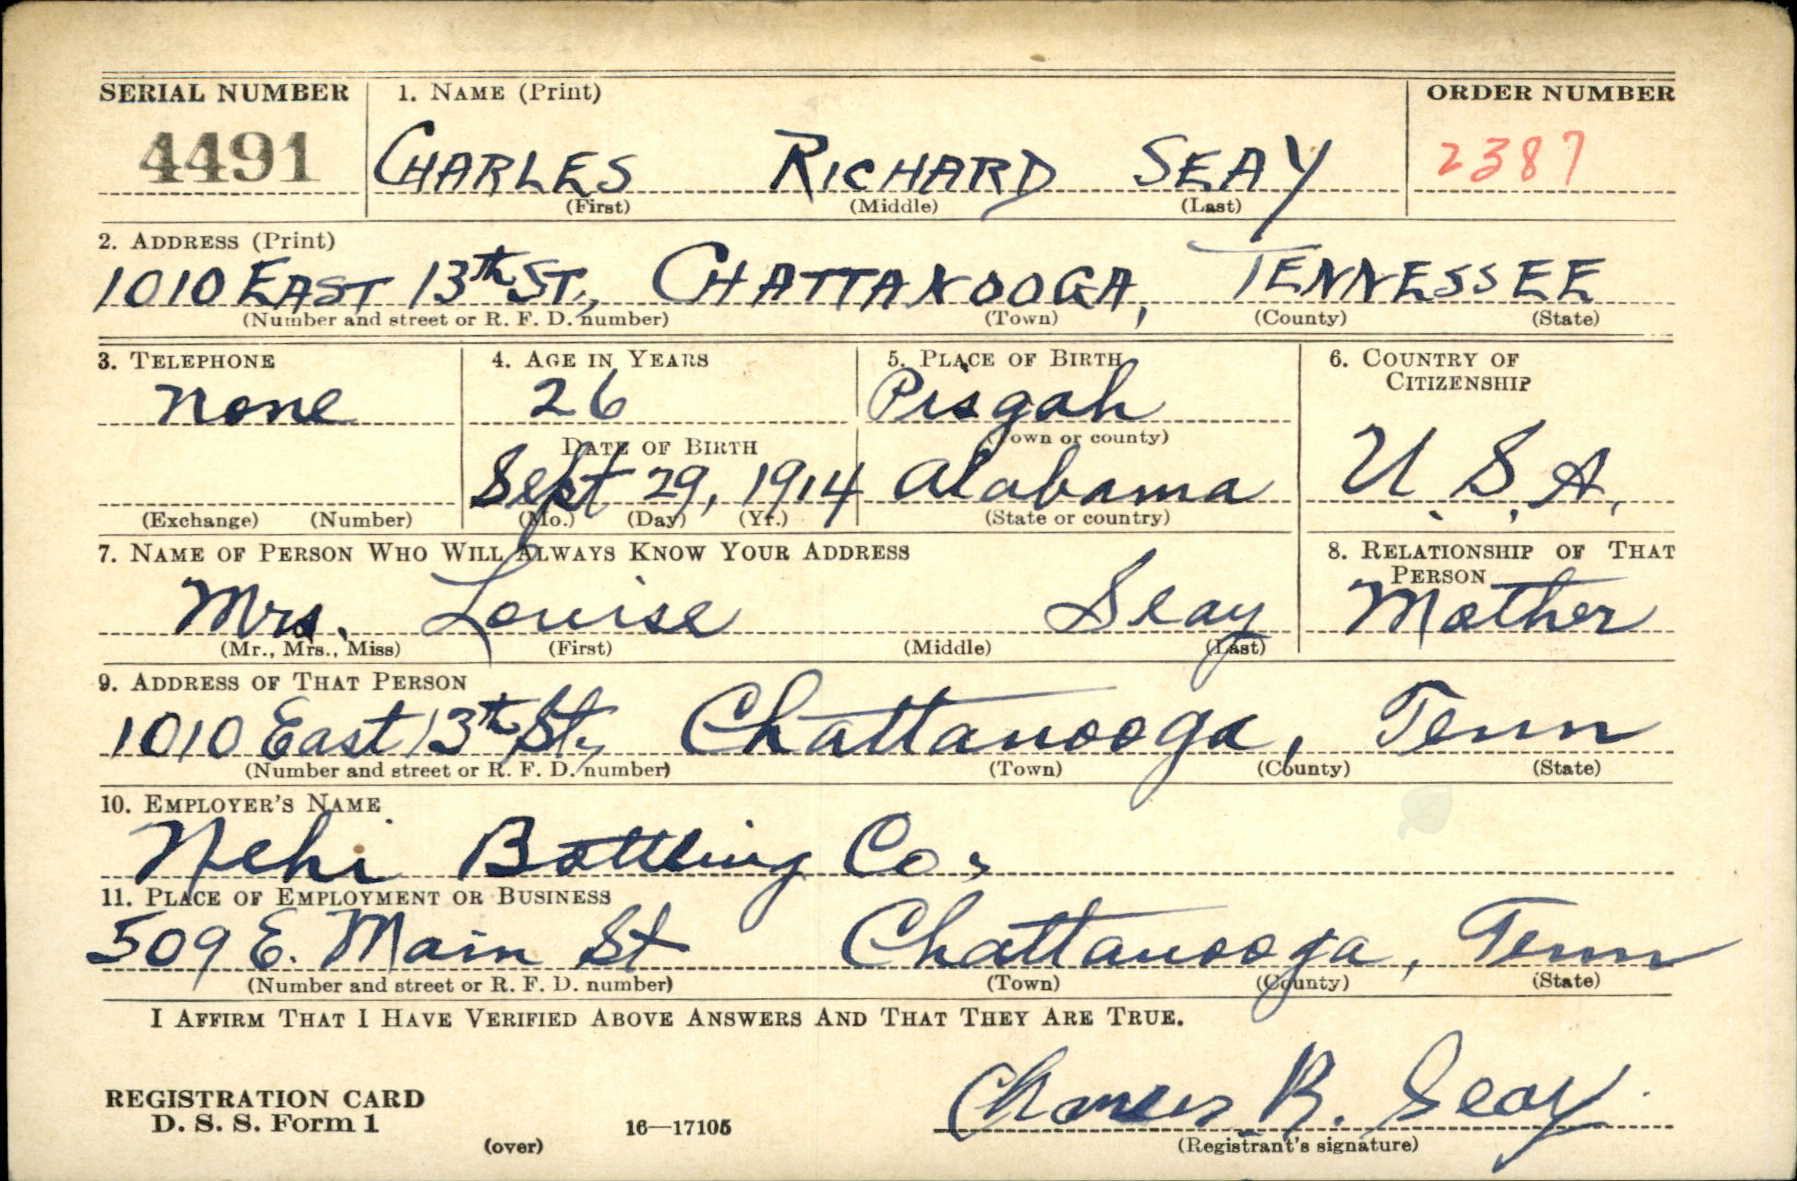 SERIAL NUMBER 1. NAME (Print) ORDER NUMBER
4491 CHARLES RICHARD SEAY 2387
(First) (Middle) (Last)
2. ADDRESS (Print)
1010 EAST 13th ST., CHATTANOOGA, TENNESSEE
(Number and street or R. F. D. number) (Town) (County) (State)
3. TELEPHONE 4. AGE IN YEARS 5. PLACE OF BIRTH 6. COUNTRY OF CITIZENSHIP
None 26 Pisgah
DATE OF BIRTH (Town or county)
Sept 29, 1914 Alabama U. S. A.
(Exchange) (Number) (Mo.) (Day) (Yr.) (State or country)
7. NAME OF PERSON WHO WILL ALWAYS KNOW YOUR ADDRESS 8. RELATIONSHIP OF THAT PERSON
Mrs. Louise Seay Mother
(Mr., Mrs., Miss) (First) (Middle) (Last)
9. ADDRESS OF THAT PERSON
1010 East 13th St., Chattanooga, Tenn
(Number and street or R. F. D. number) (Town) (County) (State)
10. EMPLOYER'S NAME
Nehi Bottling Co.
11. PLACE OF EMPLOYMENT OR BUSINESS
509 E. Main St Chattanooga, Tenn
(Number and street or R. F. D. number) (Town) (County) (State)
I AFFIRM THAT I HAVE VERIFIED ABOVE ANSWERS AND THAT THEY ARE TRUE.
Charles R. Seay
REGISTRATION CARD
D. S. S. Form 1 16—17105
(over) (Registrant's signature)